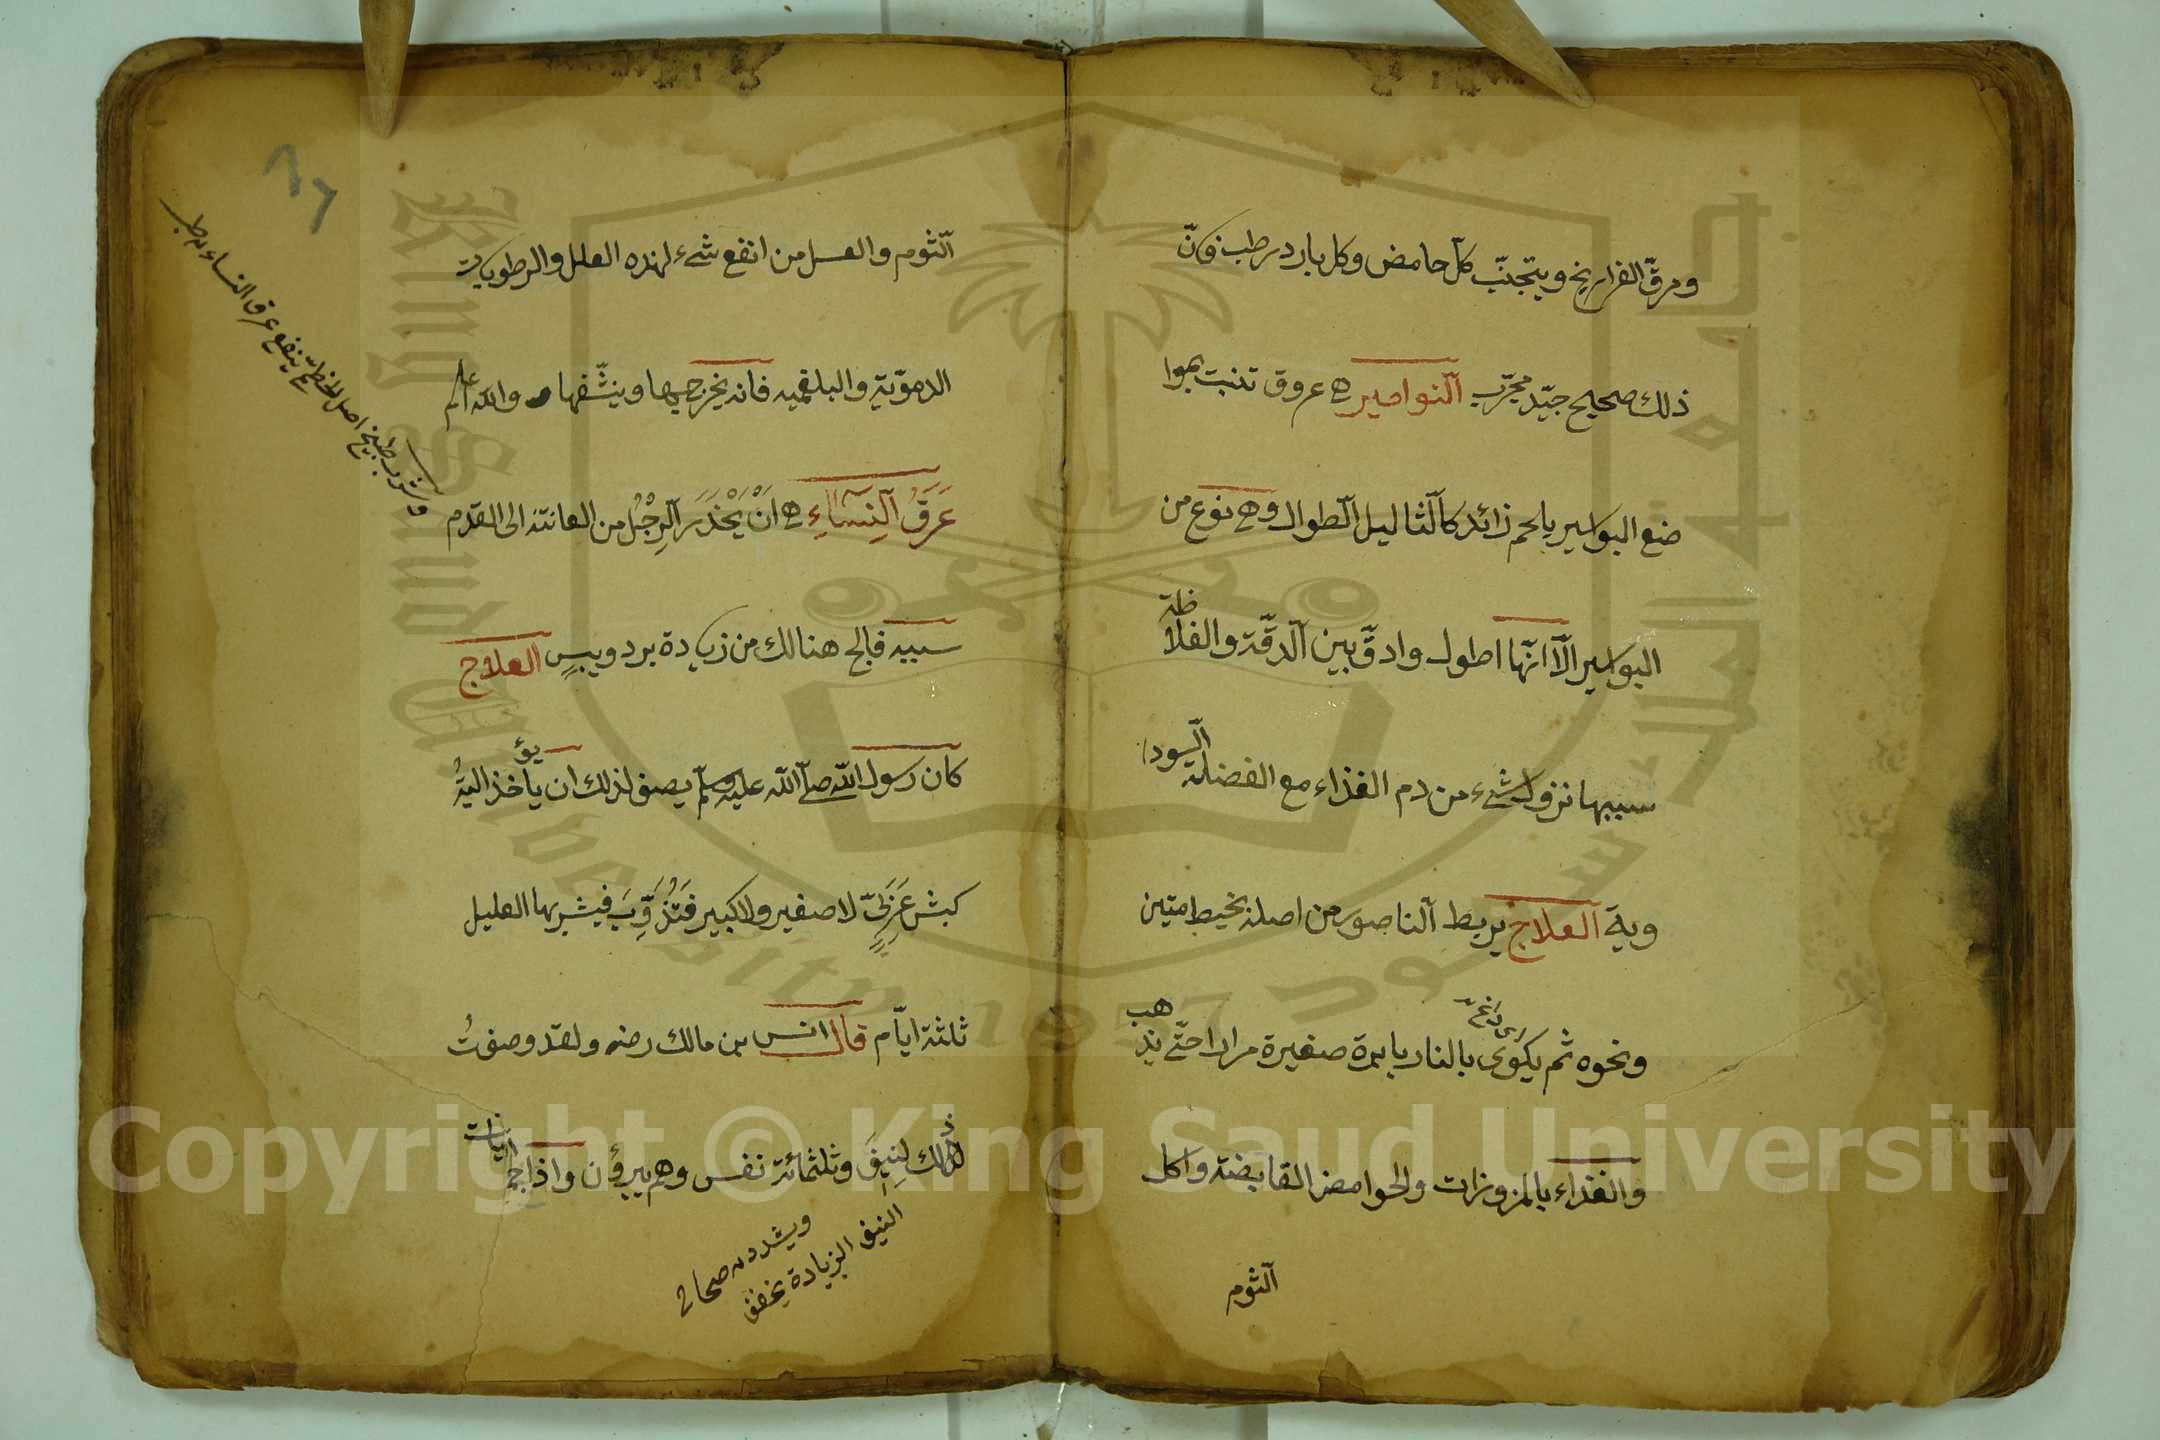 ومرقّ الفراريخ ويتجنّب كلّ حامض وكل بارد رطب فكانّ
ذلك صحيح جيّد مجرّب آلنواصير هى عروق تنبت بموا
ضع البواسير بالحم زائد كآلثاليل آلطوال وهى نوع من
البواسير الّا انّها اطول وادقّ بين آلدقّة والغلاظة
سببها نزول شىء من دم الغذاء مع الفضلة آلسودا
وية آلعلاج يربط آلناصور من اصله بخيط متين
ونحوه ثم يكوى بالنار بابرة صغيرة مرارا حتّى يذهب
والغذاء بالمزورات والحوامض القابضة واكل
آلثوم
آلثوم والعسل من انفع شىء لهذه العلل والرطوبات
الدمويّة والبلغميه فانه يخرجهيها وينشّفها والله اعلم
عَرَقُ آلنِسَآءِ هى اَنْ يَخْدَرَ آلرِجْلُ من العانة الى القدم
سببه فالج هنالك من زيادة برد ويبسٍ العلاج
كان رسول الله صلى آلله عليه وسلّم يصف لذلك ان يؤخذ اليةُ
كبش عَرَبِىّ لا صغير ولا كبير فَتُذَوَّبَ فيشربها العليل
ثلثة ايّام قال انس بن مالك رضه ولقد وصفتُ
ذلك لِنيِفَ وثلثمائة نفس وهم يبرؤن واذا
النيف الزيادة يخفف
ويشدد صحاح
شرب طبيخ اصل الخطمىّ ينفع عرق النساء طب
King Saud University
1957
Copyright © King Saud University